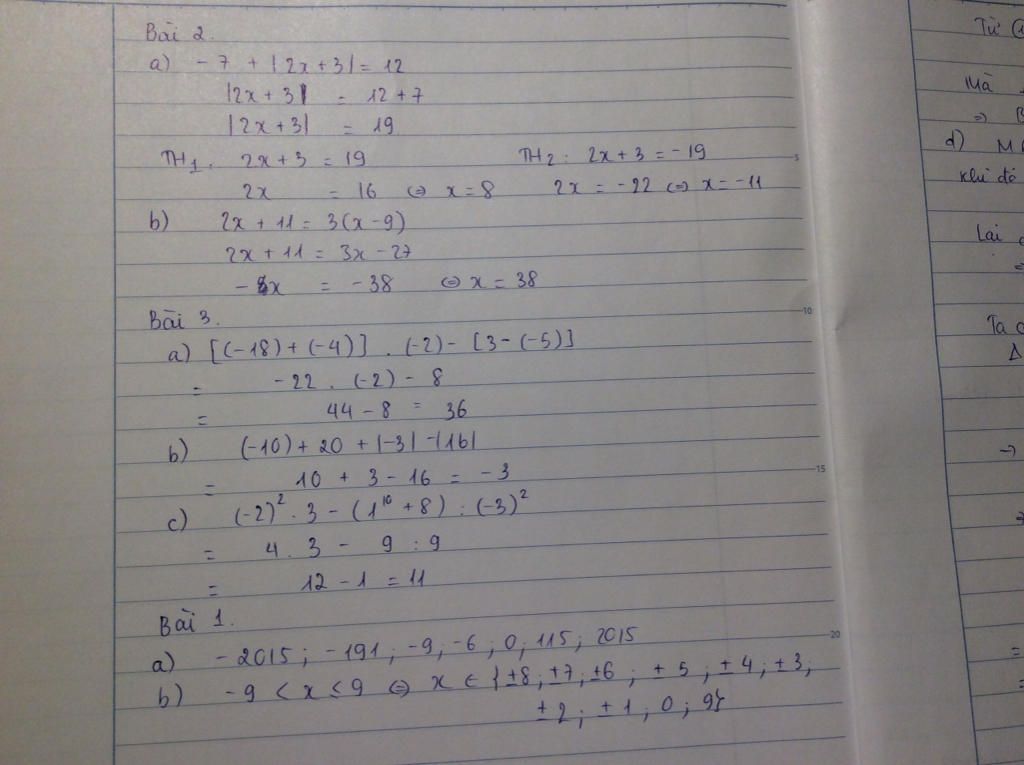 Bài 2.
a) - 7 + |2x + 3| = 12
|2x + 3| = 12 + 7
|2x + 3| = 19
TH1: 2x + 3 = 19 TH2: 2x + 3 = -19
2x = 16 ⇔ x = 8 2x = -22 ⇔ x = -11
b) 2x + 11 = 3(x - 9)
2x + 11 = 3x - 27
-x = -38 ⇔ x = 38
Bài 3.
a) [(-18) + (-4)] . (-2) - [3 - (-5)]
= -22 . (-2) - 8
= 44 - 8 = 36
b) (-10) + 20 + |-3| - |16|
= 10 + 3 - 16 = -3
c) (-2)² . 3 - (1¹⁰ + 8) : (-3)²
= 4 . 3 - 9 : 9
= 12 - 1 = 11
Bài 1.
a) -2015 ; -191 ; -9 ; -6 ; 0 ; 115 ; 2015
b) -9 < x ≤ 9 ⇔ x ∈ {±8 ; ±7 ; ±6 ; ±5 ; ±4 ; ±3 ;
±2 ; ±1 ; 0 ; 9}
5
10
15
20
Từ (1
Mà
⇒
d) M
khi đó
Lại
Ta c
Δ